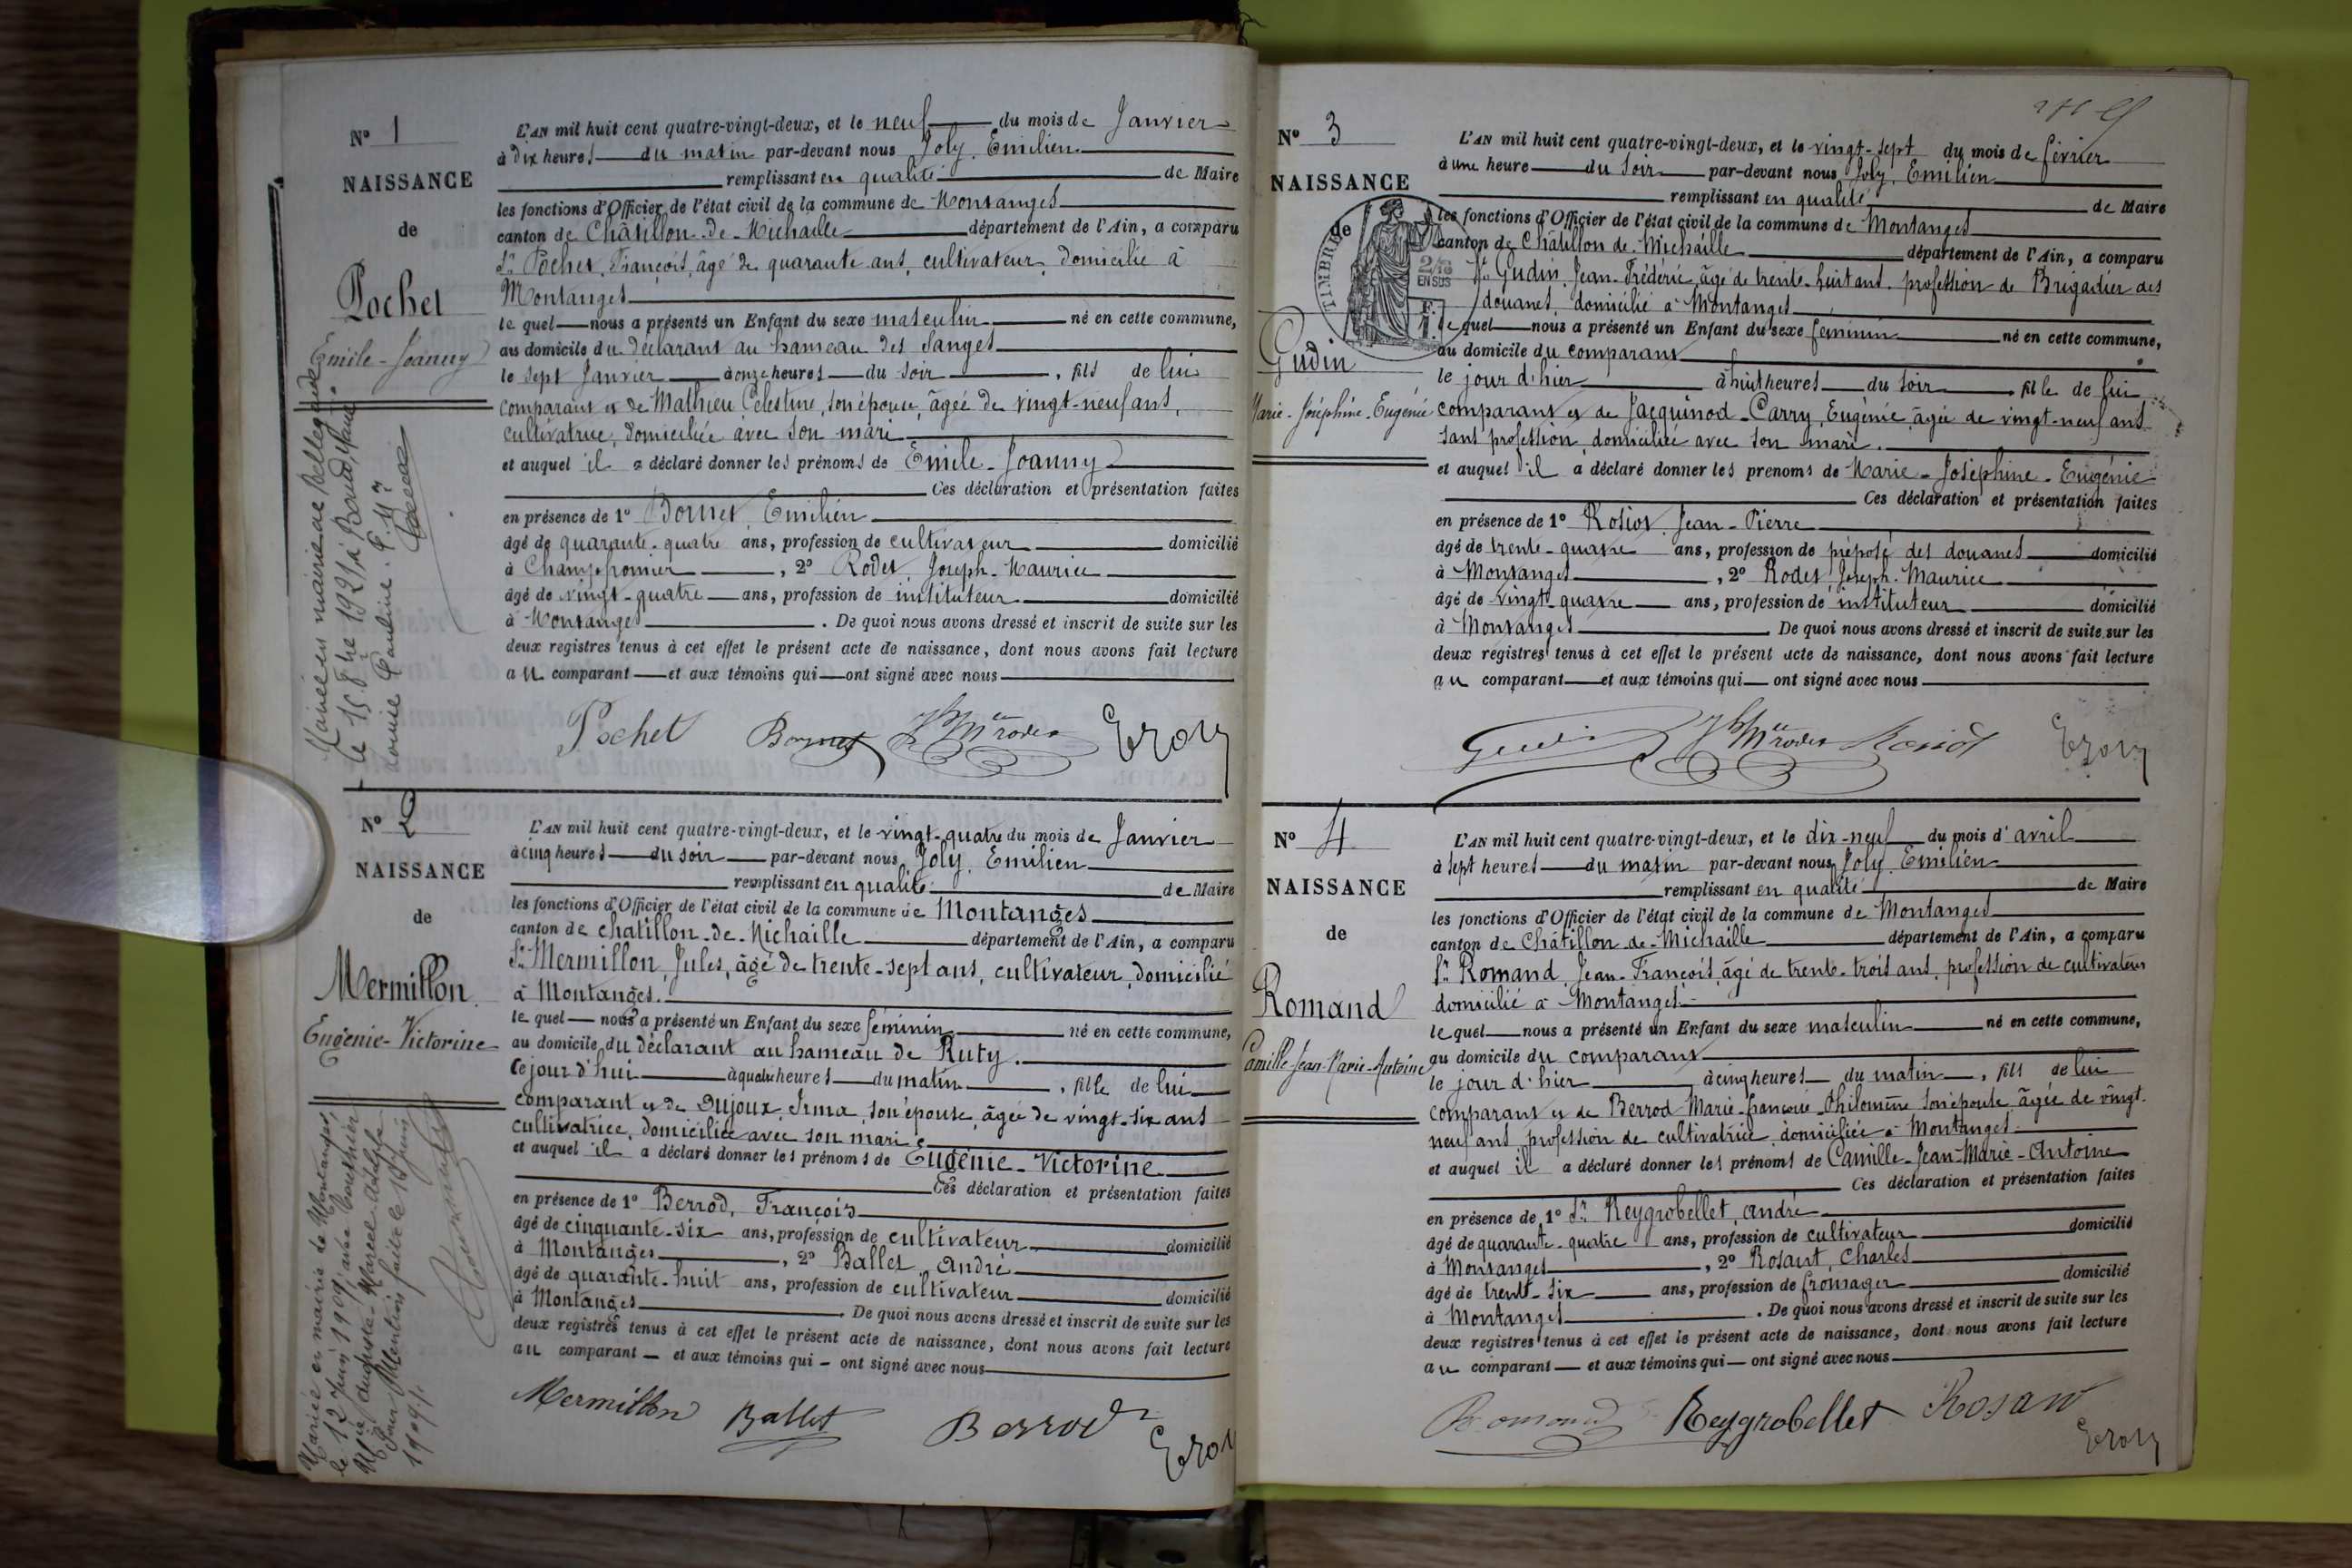 N° 1
NAISSANCE
de
Pochet
Emile-Joanny
L'AN mil huit cent quatre-vingt-deux, et le neuf du mois de Janvier
à dix heures du matin par-devant nous Joly, Emilien
remplissant en qualité de Maire
les fonctions d'Officier de l'état civil de la commune de Montanges
canton de Châtillon-de-Michaille département de l'Ain, a comparu
Sr Pochet, François, âgé de quarante ans, cultivateur, domicilié à
Montanges
le quel nous a présenté un Enfant du sexe masculin né en cette commune,
au domicile du déclarant au hameau des Sanges
le sept Janvier à onze heures du soir, fils de lui
comparant et de Mathieu Célestine, son épouse, âgée de vingt-neuf ans,
cultivatrice, domiciliée avec son mari
et auquel il a déclaré donner les prénoms de Emile-Joanny
Ces déclaration et présentation faites
en présence de 1° Bornet, Emilien
âgé de quarante-quatre ans, profession de cultivateur domicilié
à Champfromier, 2° Rodet Joseph-Maurice
âgé de vingt-quatre ans, profession de instituteur domicilié
à Montanges. De quoi nous avons dressé et inscrit de suite sur les
deux registres tenus à cet effet le présent acte de naissance, dont nous avons fait lecture
au comparant et aux témoins qui ont signé avec nous
Pochet Bornet Jh Mce rodet EJoly
Marié en mairie de Bellegarde
le 15 8bre 1921 à
Louise Pauline. P. Mon
N° 2
NAISSANCE
de
Mermillon
Eugénie-Victorine
L'AN mil huit cent quatre-vingt-deux, et le vingt-quatre du mois de Janvier
à cinq heures du soir par-devant nous Joly, Emilien
remplissant en qualité de Maire
les fonctions d'Officier de l'état civil de la commune de Montanges
canton de chatillon-de-Michaille département de l'Ain, a comparu
Sr Mermillon, Jules, âgé de trente-sept ans, cultivateur, domicilié
à Montanges.
le quel nous a présenté un Enfant du sexe féminin né en cette commune,
au domicile du déclarant au hameau de Ruty.
ce jour d'hui à quatre heures du matin, fille de lui
comparant et de Dujoux, Irma, son épouse, âgée de vingt-six ans
cultivatrice, domiciliée avec son mari
et auquel il a déclaré donner les prénoms de Eugénie-Victorine
Ces déclaration et présentation faites
en présence de 1° Berrod, François
âgé de cinquante-six ans, profession de cultivateur domicilié
à Montanges, 2° Ballet, André
âgé de quarante-huit ans, profession de cultivateur domicilié
à Montanges. De quoi nous avons dressé et inscrit de suite sur les
deux registres tenus à cet effet le présent acte de naissance, dont nous avons fait lecture
au comparant et aux témoins qui ont signé avec nous
Mermillon Ballet Berrod EJoly
Mariée en mairie de Montanges,
le 12 Juin 1909, avec
Auguste-Marcel-
Pour Mention faite le Juin
1909
N° 3
NAISSANCE
de
TIMBRE
2/10
EN SUS
Gudin
Marie-Joséphine-Eugénie
L'AN mil huit cent quatre-vingt-deux, et le vingt-sept du mois de février
à une heure du soir par-devant nous Joly, Emilien
remplissant en qualité de Maire
les fonctions d'Officier de l'état civil de la commune de Montanges
canton de Châtillon de-Michaille département de l'Ain, a comparu
Sr Gudin, Jean-Frédéric, âgé de trente-huit ans profession de Brigadier des
douanes, domicilié à Montanges
le quel nous a présenté un Enfant du sexe féminin né en cette commune,
au domicile du comparant
le jour d'hier à huit heures du soir fille de lui
comparant et de Jacquinod-Carry, Eugénie, âgée de vingt-neuf ans
sans profession, domiciliée avec son mari.
et auquel il a déclaré donner les prénoms de Marie-Joséphine-Eugénie
Ces déclaration et présentation faites
en présence de 1° Rosiot, Jean-Pierre
âgé de trente-quatre ans, profession de préposé des douanes domicilié
à Montanges, 2° Rodet, Joseph-Maurice
âgé de vingt-quatre ans, profession de instituteur domicilié
à Montanges De quoi nous avons dressé et inscrit de suite sur les
deux registres tenus à cet effet le présent acte de naissance, dont nous avons fait lecture
au comparant et aux témoins qui ont signé avec nous
Gudin Jh Mce rodet Rosiot EJoly
N° 4
NAISSANCE
de
Romand
Camille-Jean-Marie-Antoine
L'AN mil huit cent quatre-vingt-deux, et le dix-neuf du mois d'avril
à sept heures du matin par-devant nous Joly, Emilien
remplissant en qualité de Maire
les fonctions d'Officier de l'état civil de la commune de Montanges
canton de Châtillon-de-Michaille département de l'Ain, a comparu
Sr Romand, Jean-François, âgé de trente-trois ans, profession de cultivateur
domicilié à Montanges.
le quel nous a présenté un Enfant du sexe masculin né en cette commune,
au domicile du comparant
le jour d'hier à cinq heures du matin, fils de lui
comparant et de Berrod Marie-françoise Philomène son épouse âgée de vingt-
neuf ans profession de cultivatrice, domiciliée à Montanges
et auquel il a déclaré donner les prénoms de Camille-Jean-Marie-Antoine
Ces déclaration et présentation faites
en présence de 1° Sr Reygrobellet, André
âgé de quarante-quatre ans, profession de cultivateur domicilié
à Montanges, 2° Rosant, Charles
âgé de trente-six ans, profession de fromager domicilié
à Montanges. De quoi nous avons dressé et inscrit de suite sur les
deux registres tenus à cet effet le présent acte de naissance, dont nous avons fait lecture
au comparant et aux témoins qui ont signé avec nous
Romand Reygrobellet Rosan EJoly